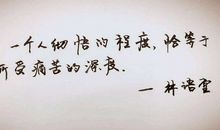 一个人彻悟的程度，恰等于
所受痛苦的深度.
—林语堂